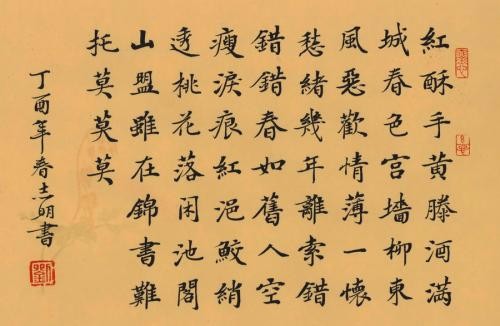 紅酥手黄滕酒滿
城春色宮墻柳東
風惡歡情薄一懷
愁緒幾年離索錯
錯錯春如舊人空
瘦淚痕紅浥鮫綃
透桃花落闲池閣
山盟雖在錦書難
托莫莫莫
丁酉年春志明書
劉